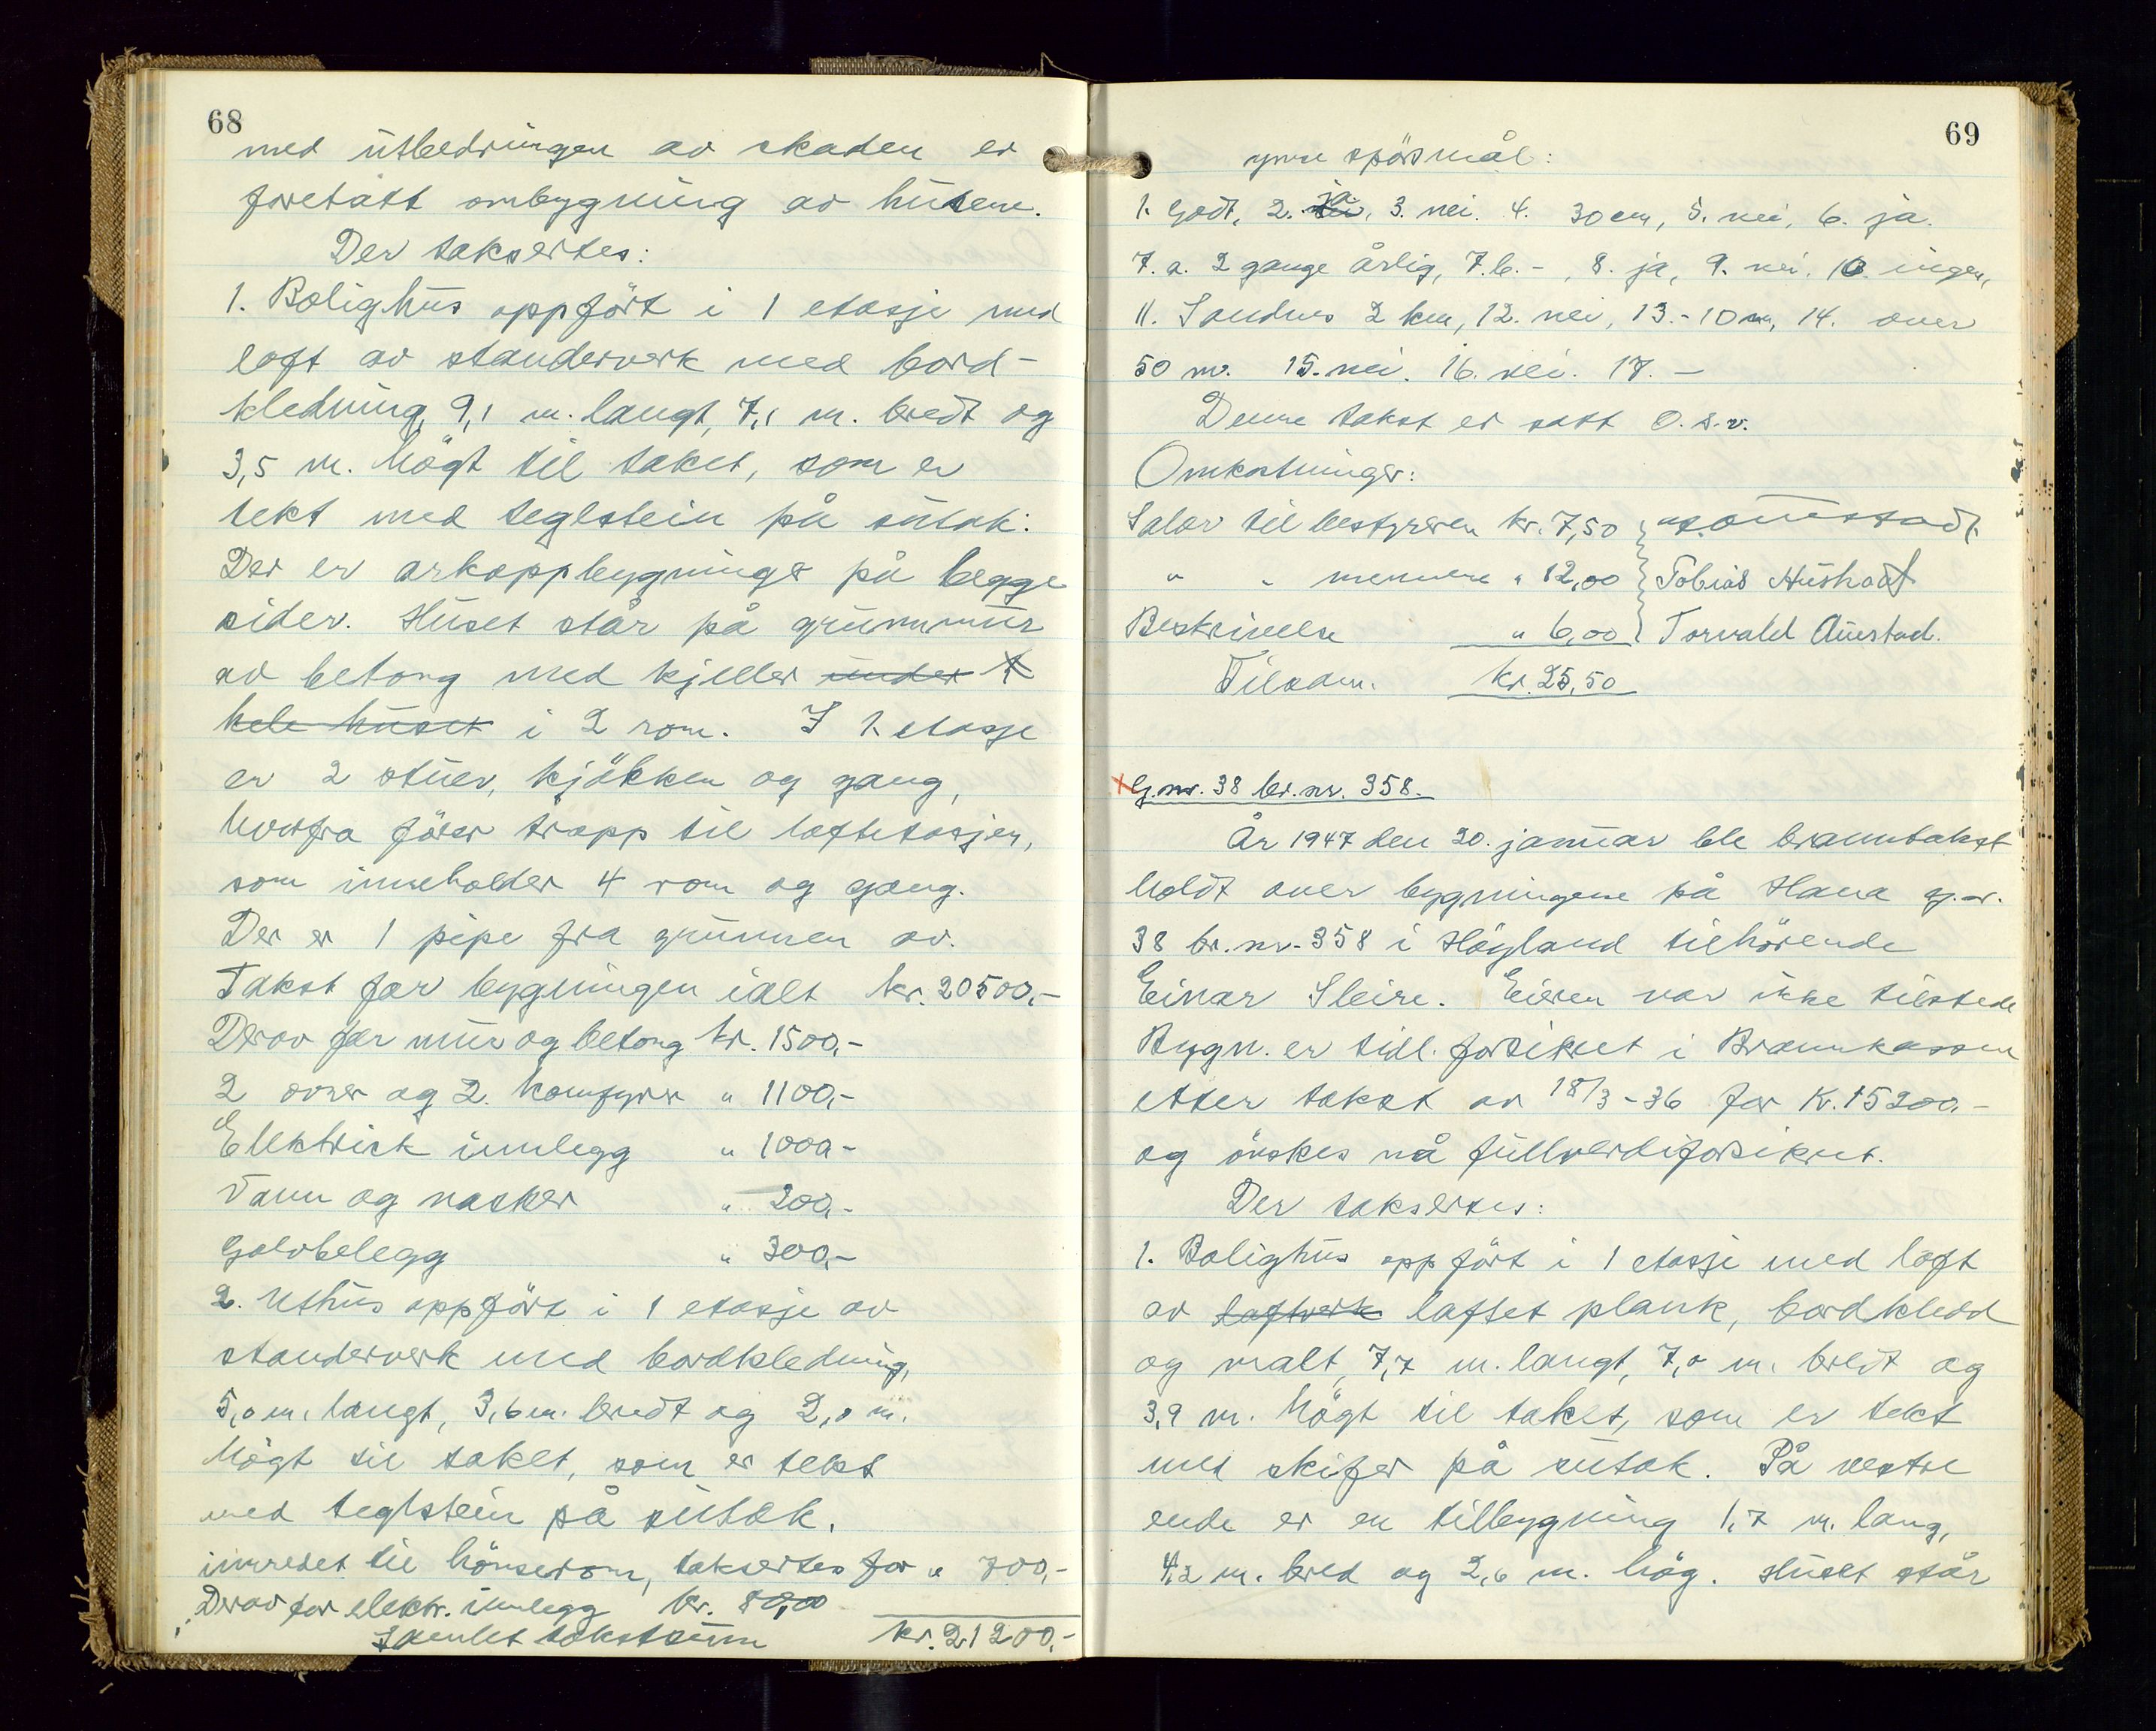 68
med utbedringen av skaden er
foretatt ombygning av husene.
Der taksertes:
1. Bolighus oppfört i 1 etasje med
loft av standerverk med bord-
kledning, 9,1 m. langt, 7,1 m. bredt og
3,5 m. högt til taket, som er
tekt med teglstein på sutak.
Der er arkoppbygninger på begge
sider. Huset står på grunnmur
av betong med kjeller under
hele huset i 2 rom. I 1. etasje
er 2 stuer, kjökken og gang,
hvorfra förer trapp til loftetasjen,
som inneholder 4 rom og gang.
Der er 1 pipe fra grunnen av.
Takst for bygningen ialt kr. 20500,-
Derav for mur og betong kr. 1500,-
2 ovner og 2 komfyrer " 1100,-
Elektrisk innlegg " 1000,-
Vann og vasker " 200,-
Golvbelegg " 300,-
2. Uthus oppfört i 1 etasje av
standerverk med bordkledning,
5,0 m. langt, 3,6 m. bredt og 2,0 m.
högt til taket, som er tekt
med teglstein på sutak,
innredet til hönserom, taksertes for " 700,-
Derav for elektr. innlegg kr. 80,00
Samlet takstsum kr. 21200,-
69
ymse spörsmål:
1. Godt, 2. ja, 3. nei. 4. 30 cm, 5. nei, 6. ja.
7.a. 2 gange årlig, 7.b. -, 8. ja, 9. nei, 10. ingen,
11. Sandnes 2 km, 12. nei, 13. - 10 m, 14. over
50 m. 15. nei. 16. nei. 17. -
Denne takst er satt o.s.v.
Omkostninger:
Salær til bestyreren kr. 7,50
" " mennene " 12,00 Tobias Hustad
Beskrivelse " 6,00 Torvald Austad.
Tilsam. kr. 25,50
G.nr. 38 br.nr. 358.
År 1947 den 20. januar ble branntakst
holdt over bygningene på Hana g.nr.
38 br.nr. 358 i Höyland tilhörende
Einar Sleire. Eieren var ikke tilstede
Bygn. er tidl. forsikret i Brannkassen
etter takst av 18/3-36 for kr. 15200,-
og önskes nå fullverdiforsikret.
Der taksertes:
1. Bolighus oppfört i 1 etasje med loft
av laftverk laftet plank, bordkledd
og malt, 7,7 m. langt, 7,0 m. bredt og
3,9 m. högt til taket, som er tekt
med skifer på sutak. På vestre
ende er en tilbygning 1,7 m. lang,
4,2 m. bred og 2,6 m. hög. Huset står